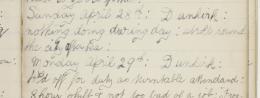 Sunday April 28th: Dunkirk:
nothing doing during day: walk round
the city
Monday April 29th: Dunkirk:
off for duty as turntable attendant:
8 hour shift & not too bad of a job: